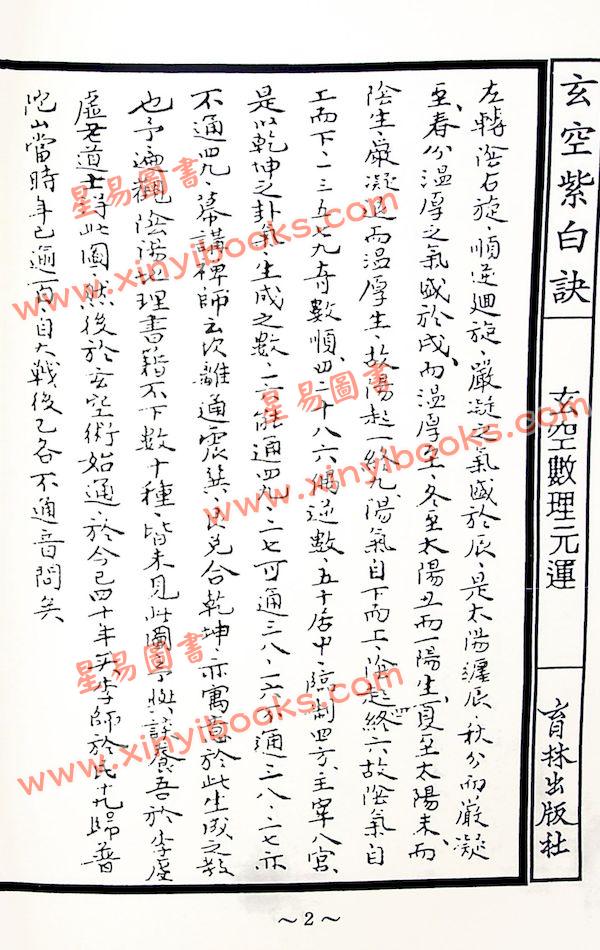 玄空紫白訣
玄空數理元運
育林出版社
左轉陰右旋、順逆廻旋、嚴凝之氣盛於辰、是太陽纏辰、秋分而嚴凝
至、春分溫厚之氣盛於戌、而溫厚至、冬至太陽丑而一陽生、夏至太陽未、而
陰生、嚴凝退而溫厚生、故陽起一終九、陽氣自下而上、陰起四終六故陰氣自
上而下、一三五七九奇數順、四二十八六偶逆數、五十居中、臨制四方、主宰八宮、
是以乾坤之卦氣、生成之數、一六能通四九、二七可通三八、一六不通三八、二七亦
不通四九、幕講禪師云坎離通震巽、艮兌合乾坤、亦寓意於此生成之數
也予遍觀陰陽地理書籍不下數十種、皆未見此圖予與談養吾於李虛
虛老道士得此圖、然後於玄空術始通、於今已四十年矣李師於民十九歸普
陀山當時年已逾百、自大戰後已各不通音問矣
星易圖書
www.xinyibooks.com
星易圖書
www.xinyibooks.com
星易圖書
www.xinyibooks.com
～2～